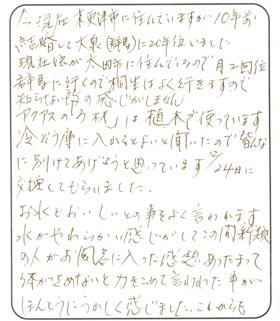 今現在 木更津市に住んでいますが10年前
結婚して大泉(群馬)に20年位いました
現在 娘が太田市に住んでいるので月2回位
群馬に行くので桐生はよく行きますので
知らない所の感じがしません
「は植木で使っています
冷ぞう庫に入れるとよいと聞いたので皆んな
に分けてあげようと思っています 12/24日に
交換してもらいました。
お水とおいしいとの事をよく言われます
水がやわらかい感じがしてこの間新築
の人がお風呂に入った感想、あたたまって
体がさめないと力をこめて言われた事が
ほんとうにうれしく感じました。これからも